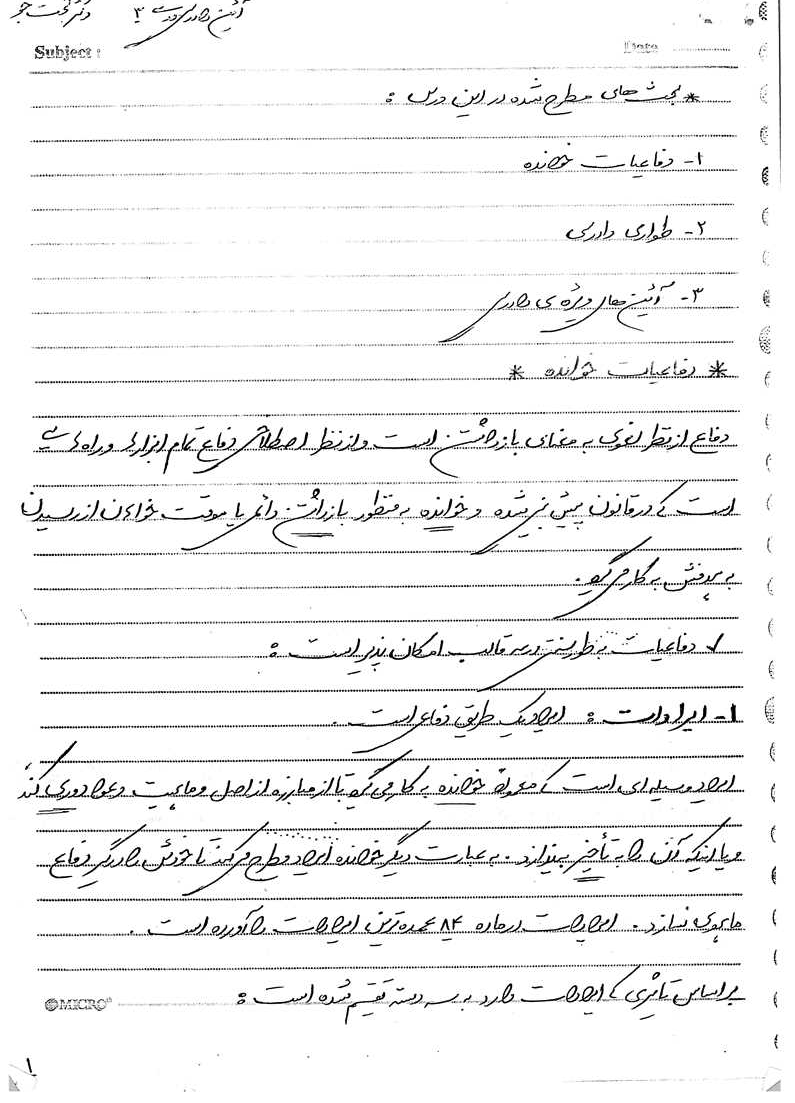 آئین دادرسی مدنی ۳
Subject :
Date
* بحث های مطرح شده در این درس :
۱- دفاعیات خوانده
۲- طواری دادرسی
۳- آئین های ویژه ی دادرسی
* دفاعیات خوانده *
دفاع از نظر لغوی به معنای بازداشتن است و از نظر اصطلاحی دفاع تمام ابزارها و راه هایی
است که در قانون پیش بینی شده و خوانده به منظور بازداشتن دائم یا موقت خواهان از رسیدن
به هدفش به کار می گیرد.
✓ دفاعیات به طور سنتی در سه قالب امکان پذیر است :
۱- ایرادات : ایراد یک طریق دفاعی است.
ایراد وسیله ای است که معمولا خوانده به کار می گیرد تا از مبارزه از اصل و ماهیت دعوا دوری کند
و یا اینکه آن را به تأخیر بیندازد. به عبارت دیگر خوانده ایراد مطرح می کند تا خودش را درگیر دفاع
ماهوی نسازد. ایرادات در ماده ۸۴ عمده ترین ایرادات را آورده است.
بر اساس تاثیری که ایرادات دارد به سه دسته تقسیم شده است :
MICRO
۱